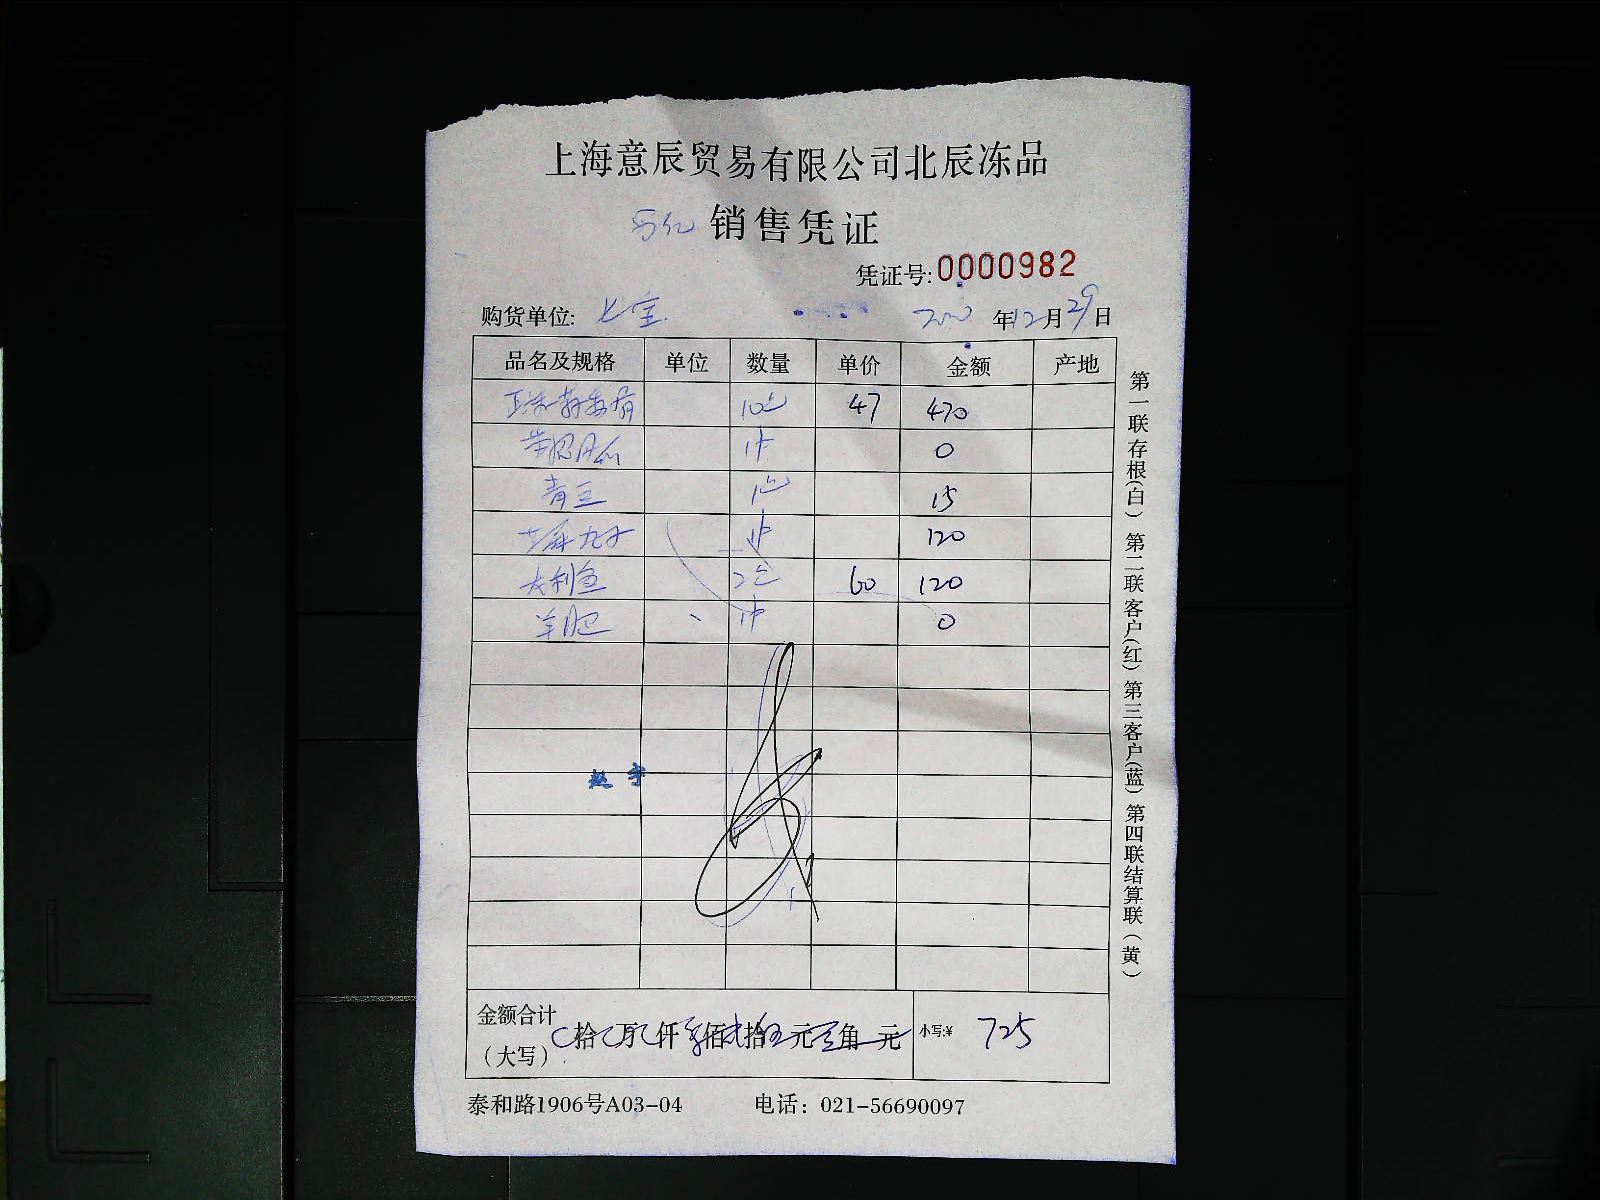 上海意辰贸易有限公司北辰冻品
销售凭证
凭证号:0000982
购货单位: 七宝 年12月29日
品名及规格 单位 数量 单价 金额 产地
10包 47 470
1件 0
青豆 1包 15
丸子 1件 120
龙利鱼 2包 60 120
羊肥 1件 0
赵宇
金额合计
(大写) 拾 万 仟 佰 拾 元 角 元 小写:¥ 725
泰和路1906号A03-04 电话: 021-56690097
第一联存根(白) 第二联客户(红) 第三客户(蓝) 第四联结算联(黄)